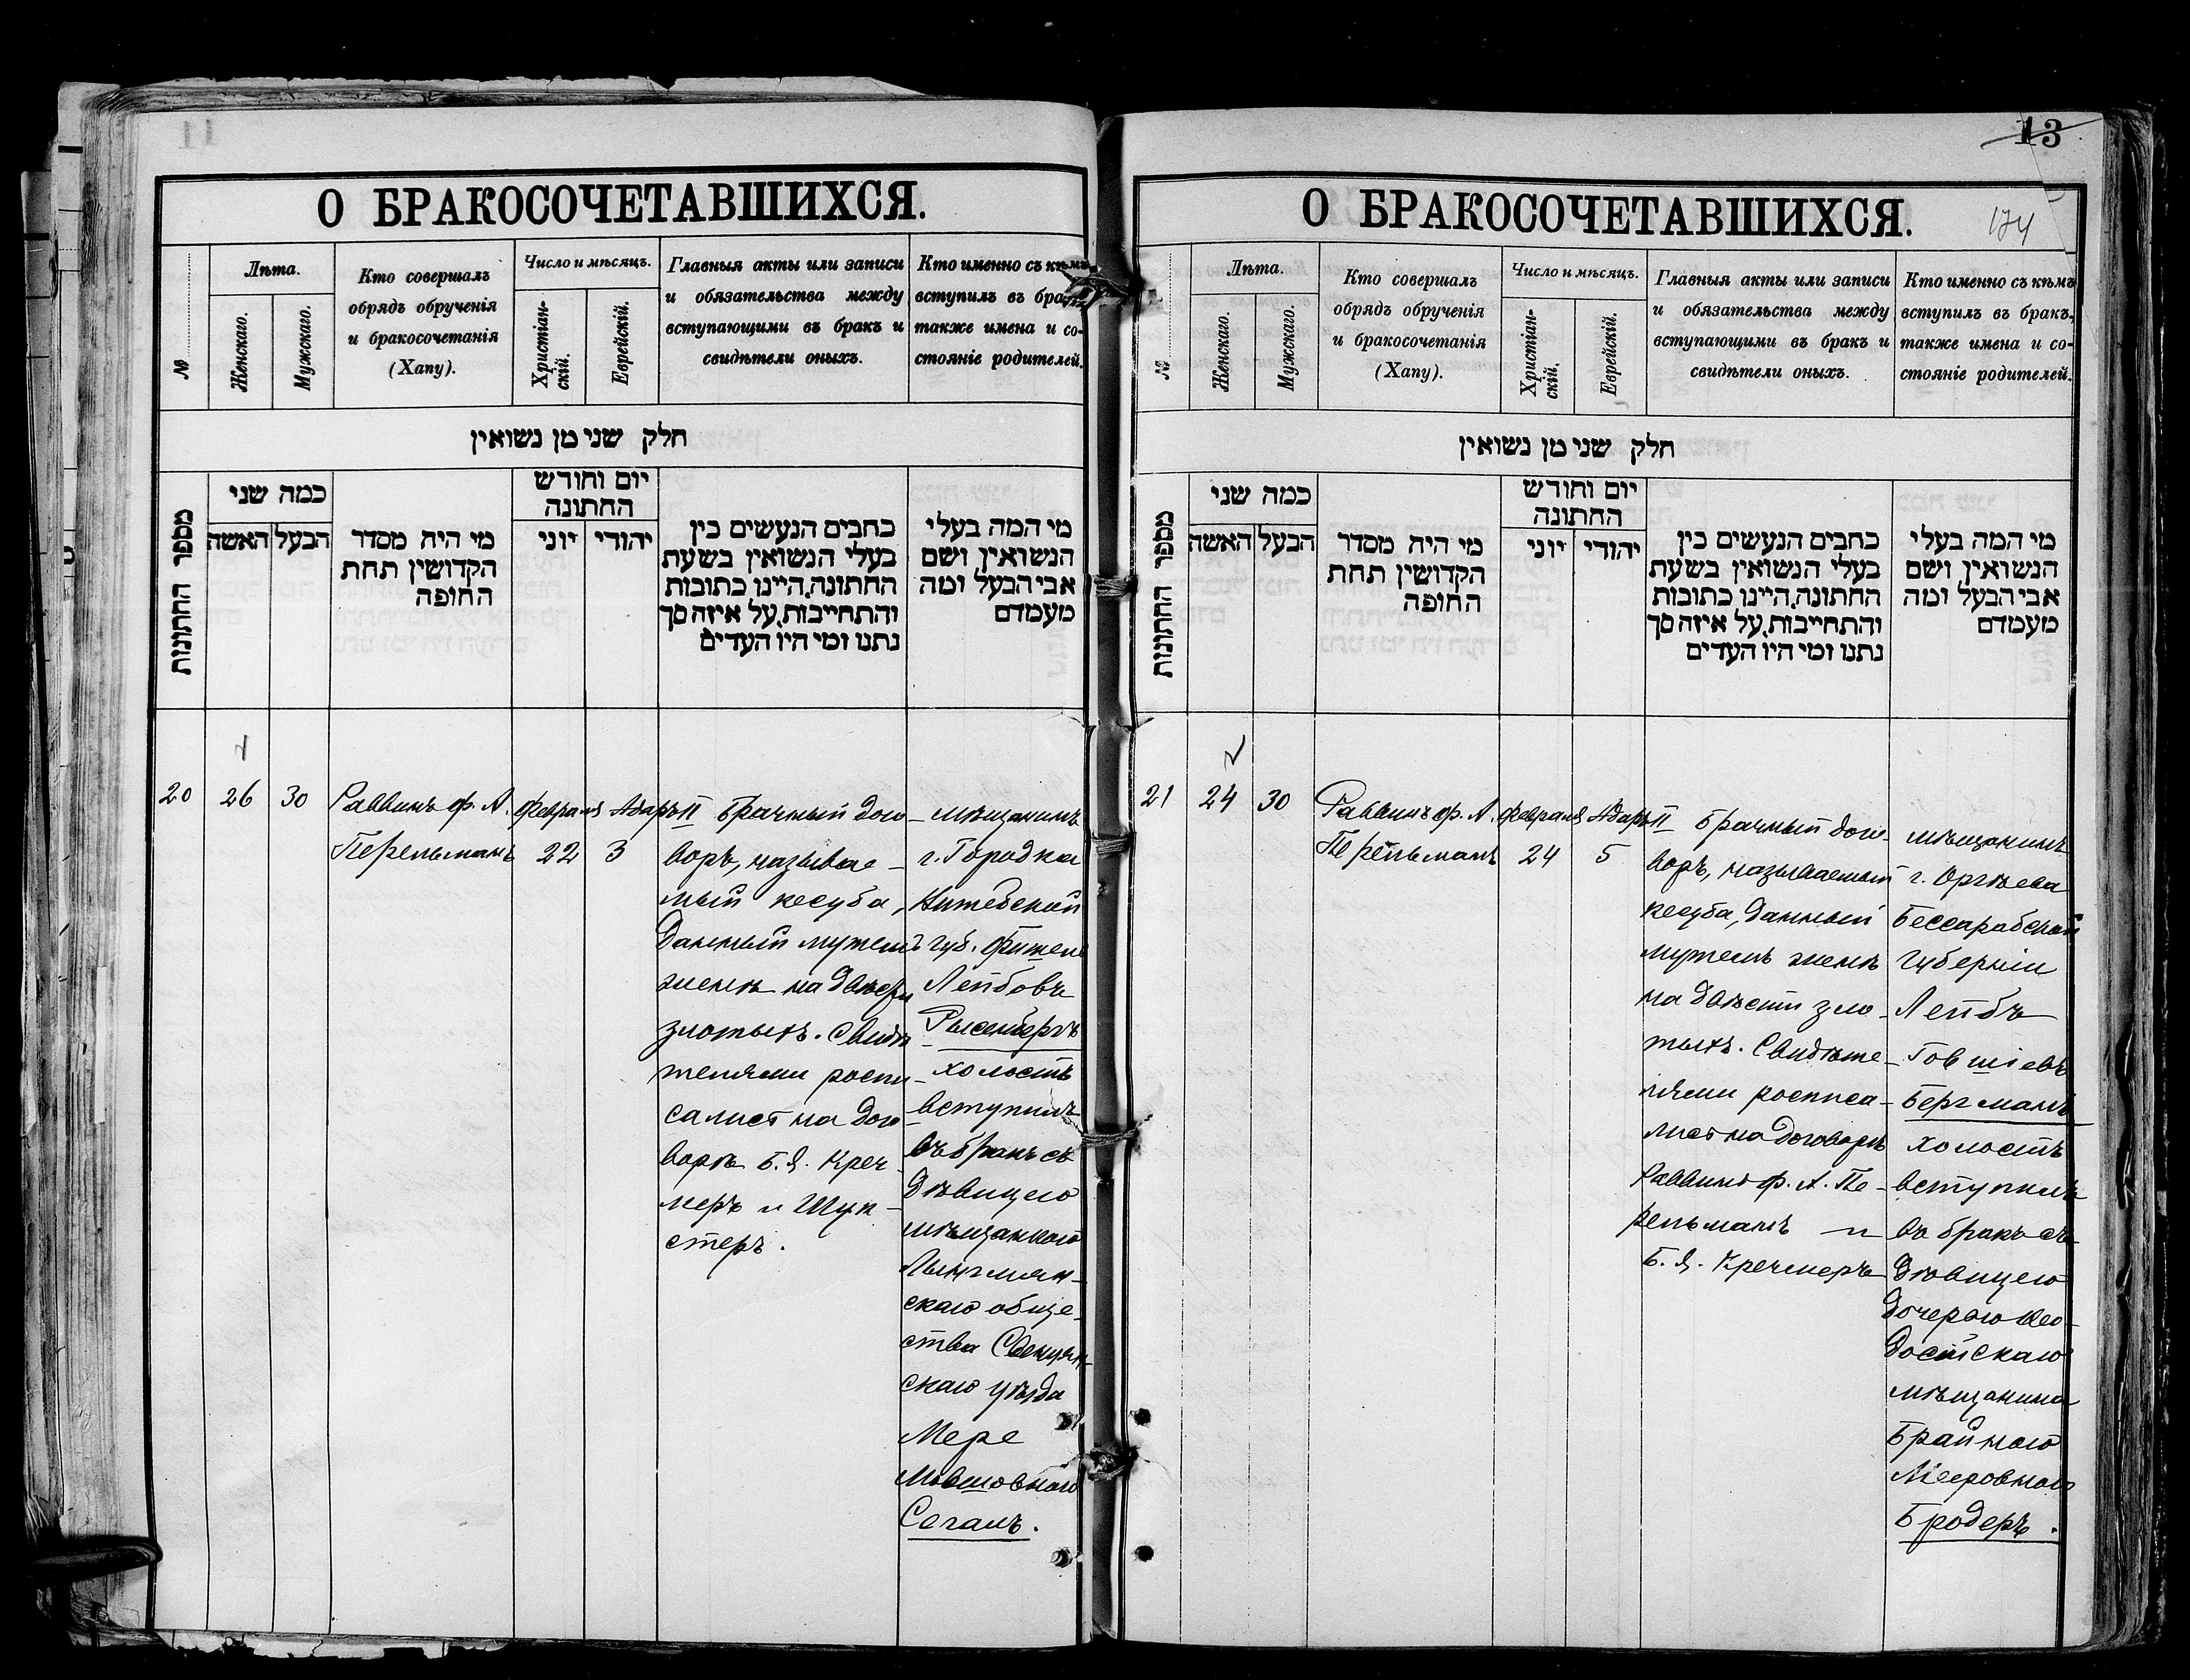 О БРАКОСОЧЕТАВШИХСЯ.
№
Лѣта.
Женскаго.
Мужскаго.
Кто совершалъ
обрядъ обрученія
и бракосочетанія
(Хапу).
Число и мѣсяцъ.
Христіан-
скій.
Еврейскій.
Главныя акты или записи
и обязательства между
вступающими въ бракъ и
свидѣтели оныхъ.
Кто именно съ кѣмъ
вступилъ въ бракъ,
также имена и со-
стояніе родителей.
חלק שני מן נשואין
מספר החתונות
כמה שני
האשה
הבעל
מי היה מסדר
הקדושין תחת
החופה
יום וחודש
החתונה
יוני
יהודי
כתבים הנעשים בין
בעלי הנשואין בשעת
החתונה, היינו כתובות
והתחייבות, על איזה סך
נתנו ומי היו העדים
מי המה בעלי
הנשואין ושם
אבי הבעל ומה
מעמדם
20
26
30
Раввинъ Ф. А.
Перельманъ
Февраля
22
Адаръ II
3
Брачный дого-
воръ, называе-
мый кесуба,
данный мужемъ
женѣ на двѣсти
злотыхъ. Свидѣ
телями роспи-
салист на дого
ворѣ Б. Я. Креч-
меръ и Шук-
стеръ.
мѣщанинъ
г. Городка
Витебской
губ.
Лейбовъ
холостъ
вступилъ
въ бракъ съ
дѣвицею
мѣщанкою
Лынгмян-
скаго обще-
ства Свенцян-
скаго уѣзда
Мере
Мовшовною
Сегалъ.
13
174
О БРАКОСОЧЕТАВШИХСЯ.
№
Лѣта.
Женскаго.
Мужскаго.
Кто совершалъ
обрядъ обрученія
и бракосочетанія
(Хапу).
Число и мѣсяцъ.
Христіан-
скій.
Еврейскій.
Главныя акты или записи
и обязательства между
вступающими въ бракъ и
свидѣтели оныхъ.
Кто именно съ кѣмъ
вступилъ въ бракъ,
также имена и со-
стояніе родителей.
חלק שני מן נשואין
מספר החתונות
כמה שני
האשה
הבעל
מי היה מסדר
הקדושין תחת
החופה
יום וחודש
החתונה
יוני
יהודי
כתבים הנעשים בין
בעלי הנשואין בשעת
החתונה, היינו כתובות
והתחייבות, על איזה סך
נתנו ומי היו העדים
מי המה בעלי
הנשואין ושם
אבי הבעל ומה
מעמדם
21
24
30
Раввинъ Ф. А.
Перельманъ
Февраля
24
Адаръ II
5
Брачный дого-
воръ, называемый
кесуба, данный
мужемъ женѣ
на двѣсти зло-
тыхъ. Свидѣте-
лями росписа-
лист на договорѣ
Раввинъ Ф. А. Пе-
рельманъ и
Б. Я. Кречмеръ
мѣщанинъ
г. Оргѣева
Бессарабской
Губерніи
Лейбъ
Говшіевъ
Бергманъ
холостъ
вступилъ
въ бракъ съ
дѣвицею
дочерью Ѳео-
досійскаго
мѣщанина
Брайною
Мееровною
Бродеръ.